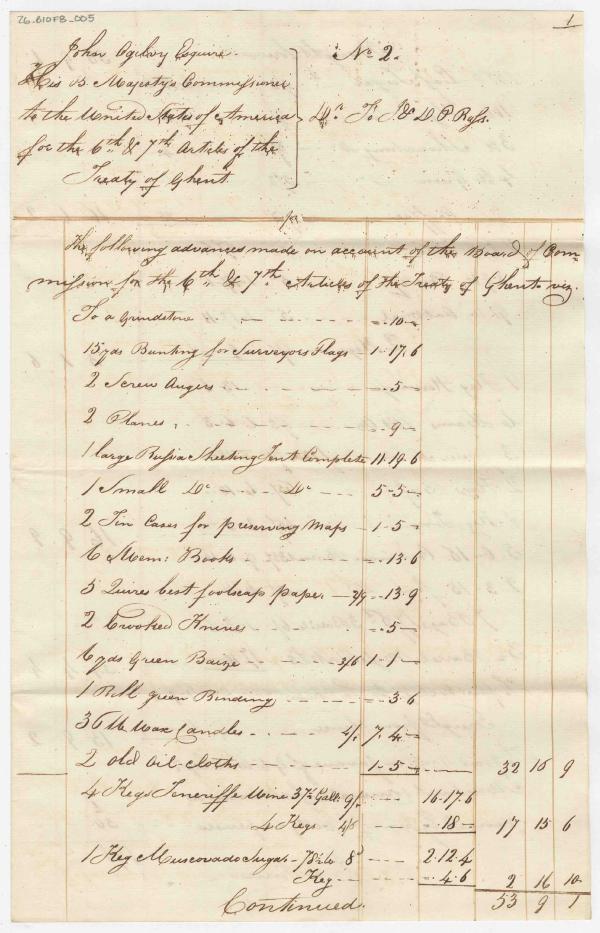 26.B10FB_005
1
John Ogilvy Esquire
His B Majestys Commissioner
to the United States of America
for the 6th & 7th Articles of the
Treaty of Ghent
No 2.
Dr To J. & D. P. Ross.
For
The following advances made on account of the Board of Com-
mission for the 6th & 7th Articles of the Treaty of Ghent viz
To a Grindstone - - - -.10-
15 yds Bunting for Surveyors Flags - 1.17.6
2 Screw Augers - - - -.5-
2 Planes, - - - -.9-
1 large Russia Sheeting Tent Complete 11.19.6
1 Small Do - Do - - - 5-5-
2 Tin Cases for preserving Maps - 1-5-
6 Mem: Books - - - -.13.6
5 Quires best foolscap paper - 2/9 -.13.9
2 Crooked Knives - - - -.5-
6 yds Green Baize - - - 3/6 1-1-
1 Roll green Binding - - - -.3.6
36 lb Wax Candles - - - 4/. 7.4.
2 Old Oil-cloths - - - 1-5- 32 16 9
4 Kegs Teneriffe Wine 37½ Gall: 9/. - - - 16.17.6
4 Kegs 4/6 - - - -.18- 17 15 6
1 Keg Muscovado Sugar - 78½ lb 8d - - - 2.12.4
Key - - - -.4.6 2 16 10
Continued. 53 9 1